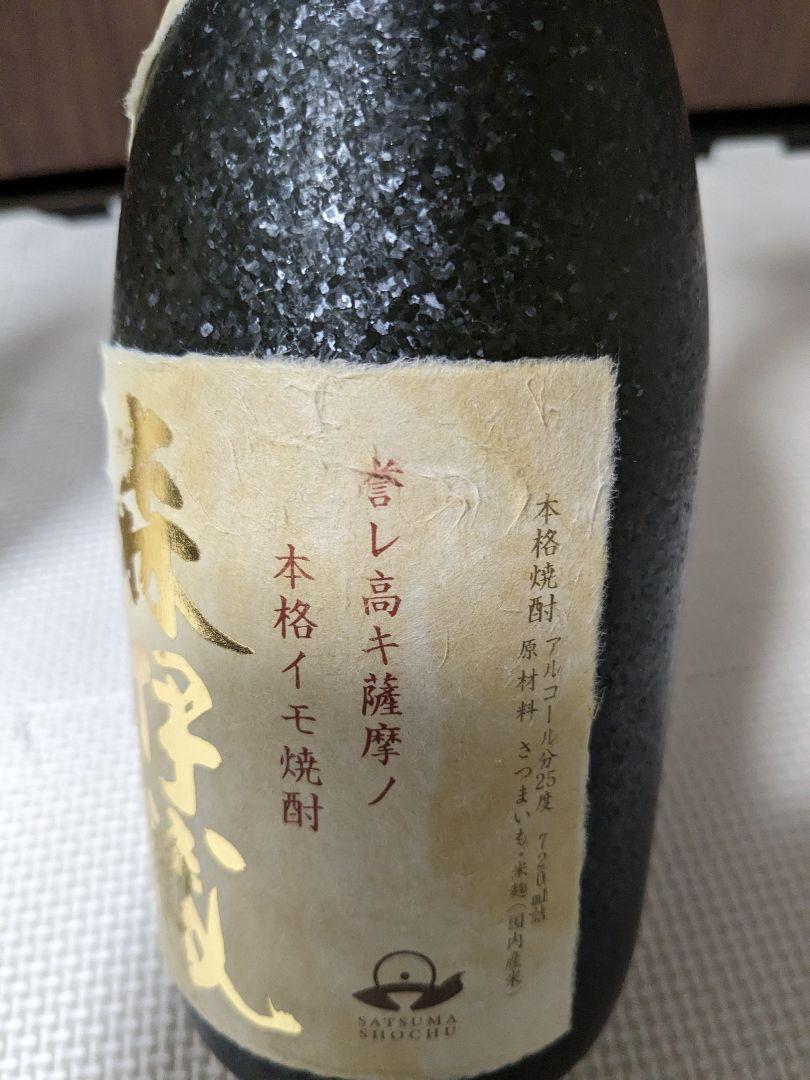 本格焼酎 アルコール分25度 720ml詰
原材料 さつまいも・米麹（国内産米）
誉レ高キ薩摩ノ
本格イモ焼酎
森伊蔵
SATSUMA
SHOCHU